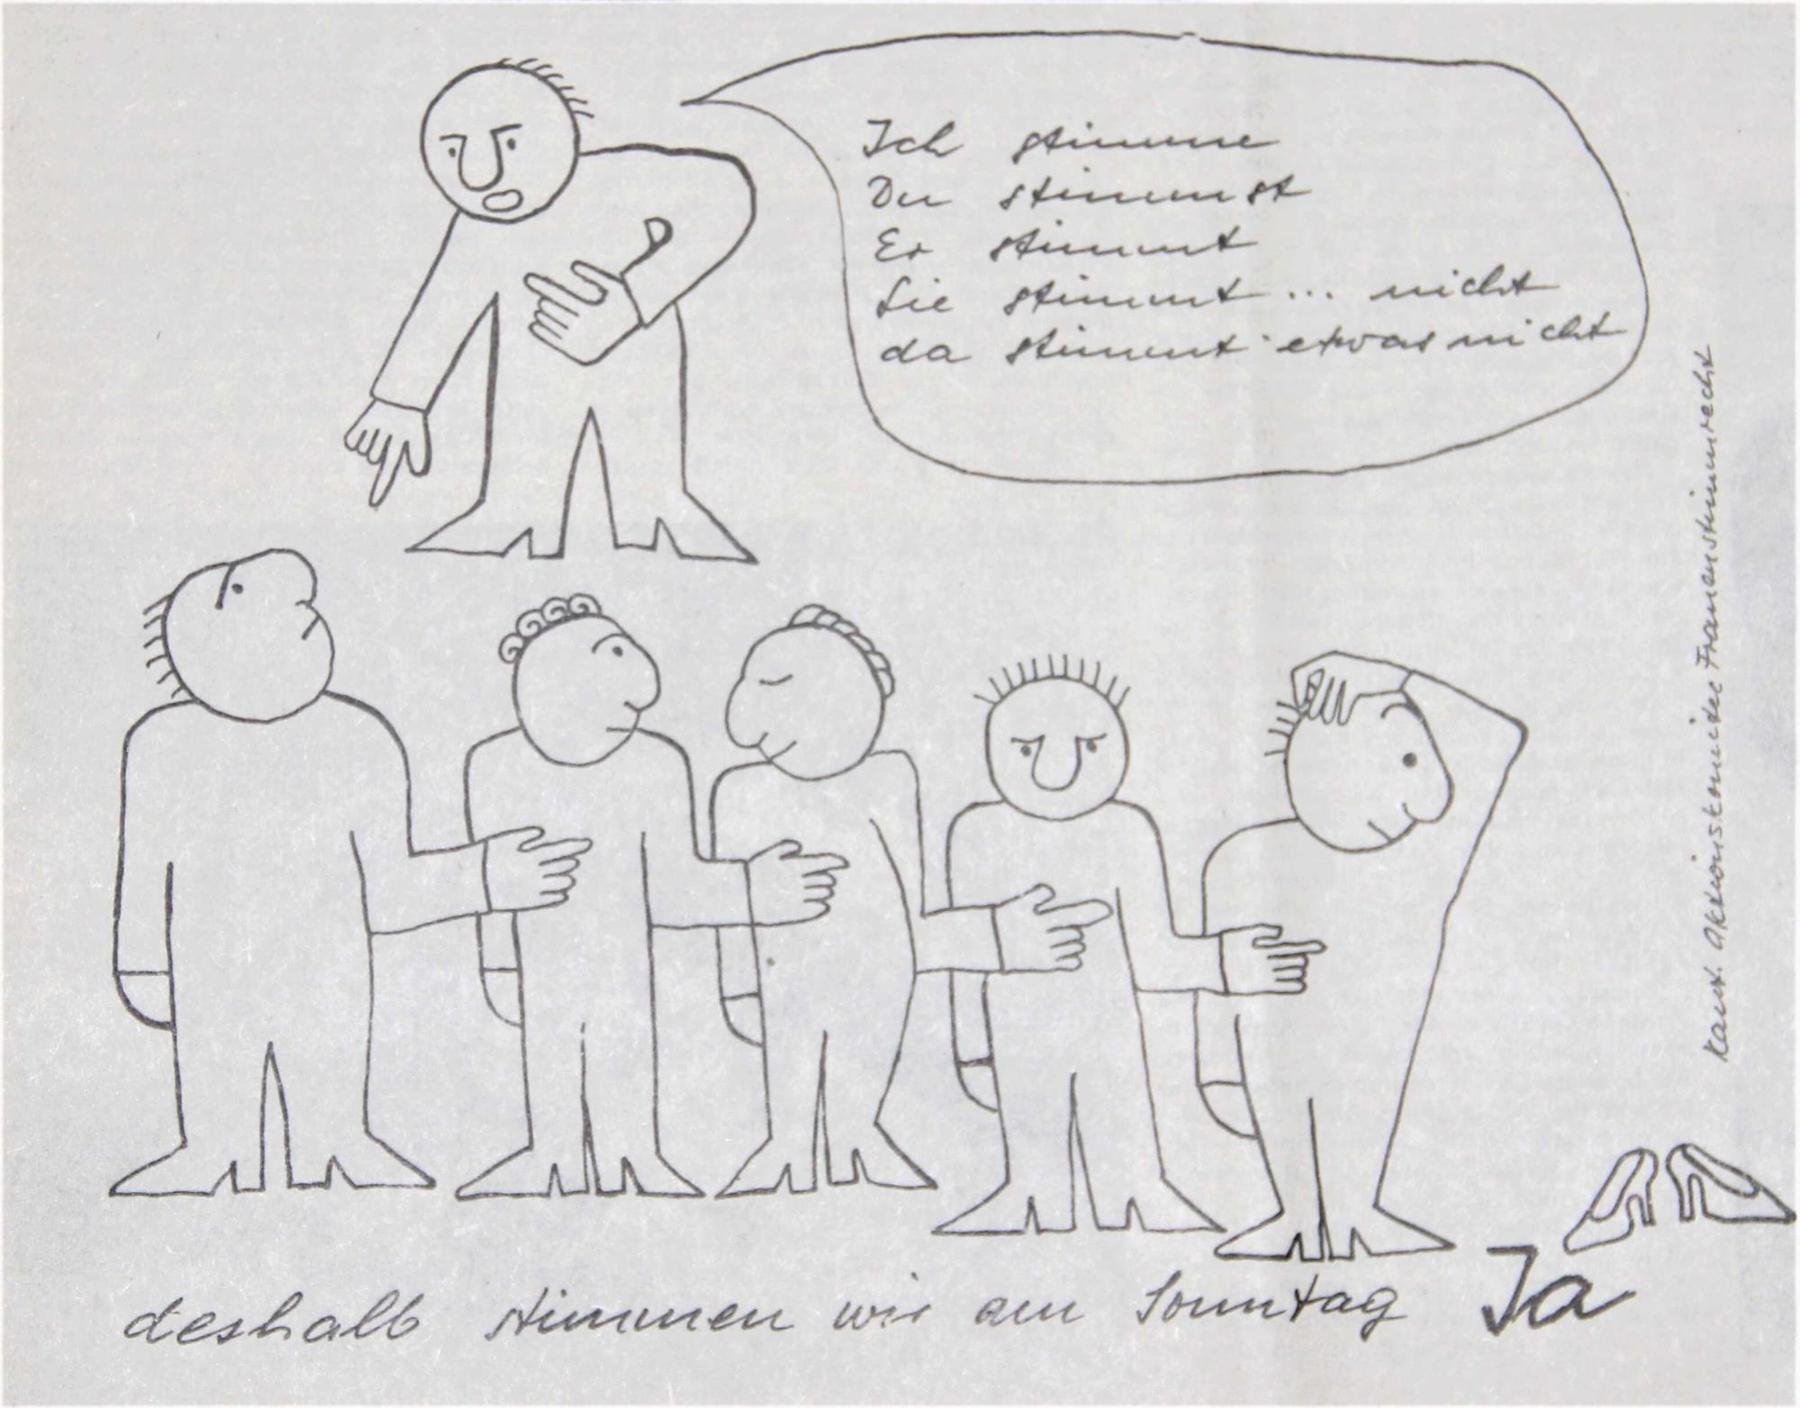 Ich stimme
Du stimmst
Er stimmt
Sie stimmt ... nicht
da stimmt etwas nicht
Kant. Aktionskomitee Frauenstimmrecht
deshalb stimmen wir am Sonntag Ja